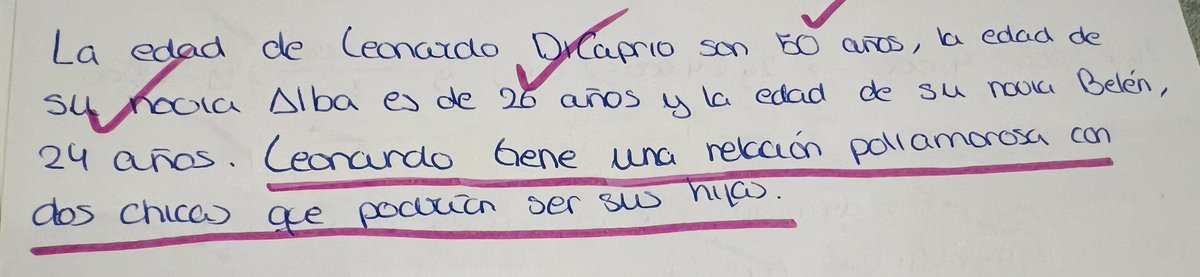 La edad de Leonardo DiCaprio son 50 años, la edad de
su novia Alba es de 26 años y la edad de su novia Belén,
24 años. Leonardo tiene una relación poliamorosa con
dos chicas que podrían ser sus hijas.